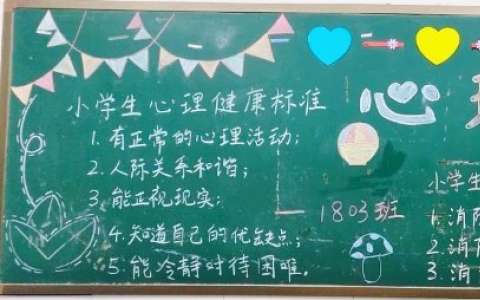 小学生心理健康标准
1.有正常的心理活动;
2.人际关系和谐;
3.能正视现实;
4.知道自己的优缺点;
5.能冷静对待困难.
心理
1803班
小学生
1.消防
2.消防
3.消